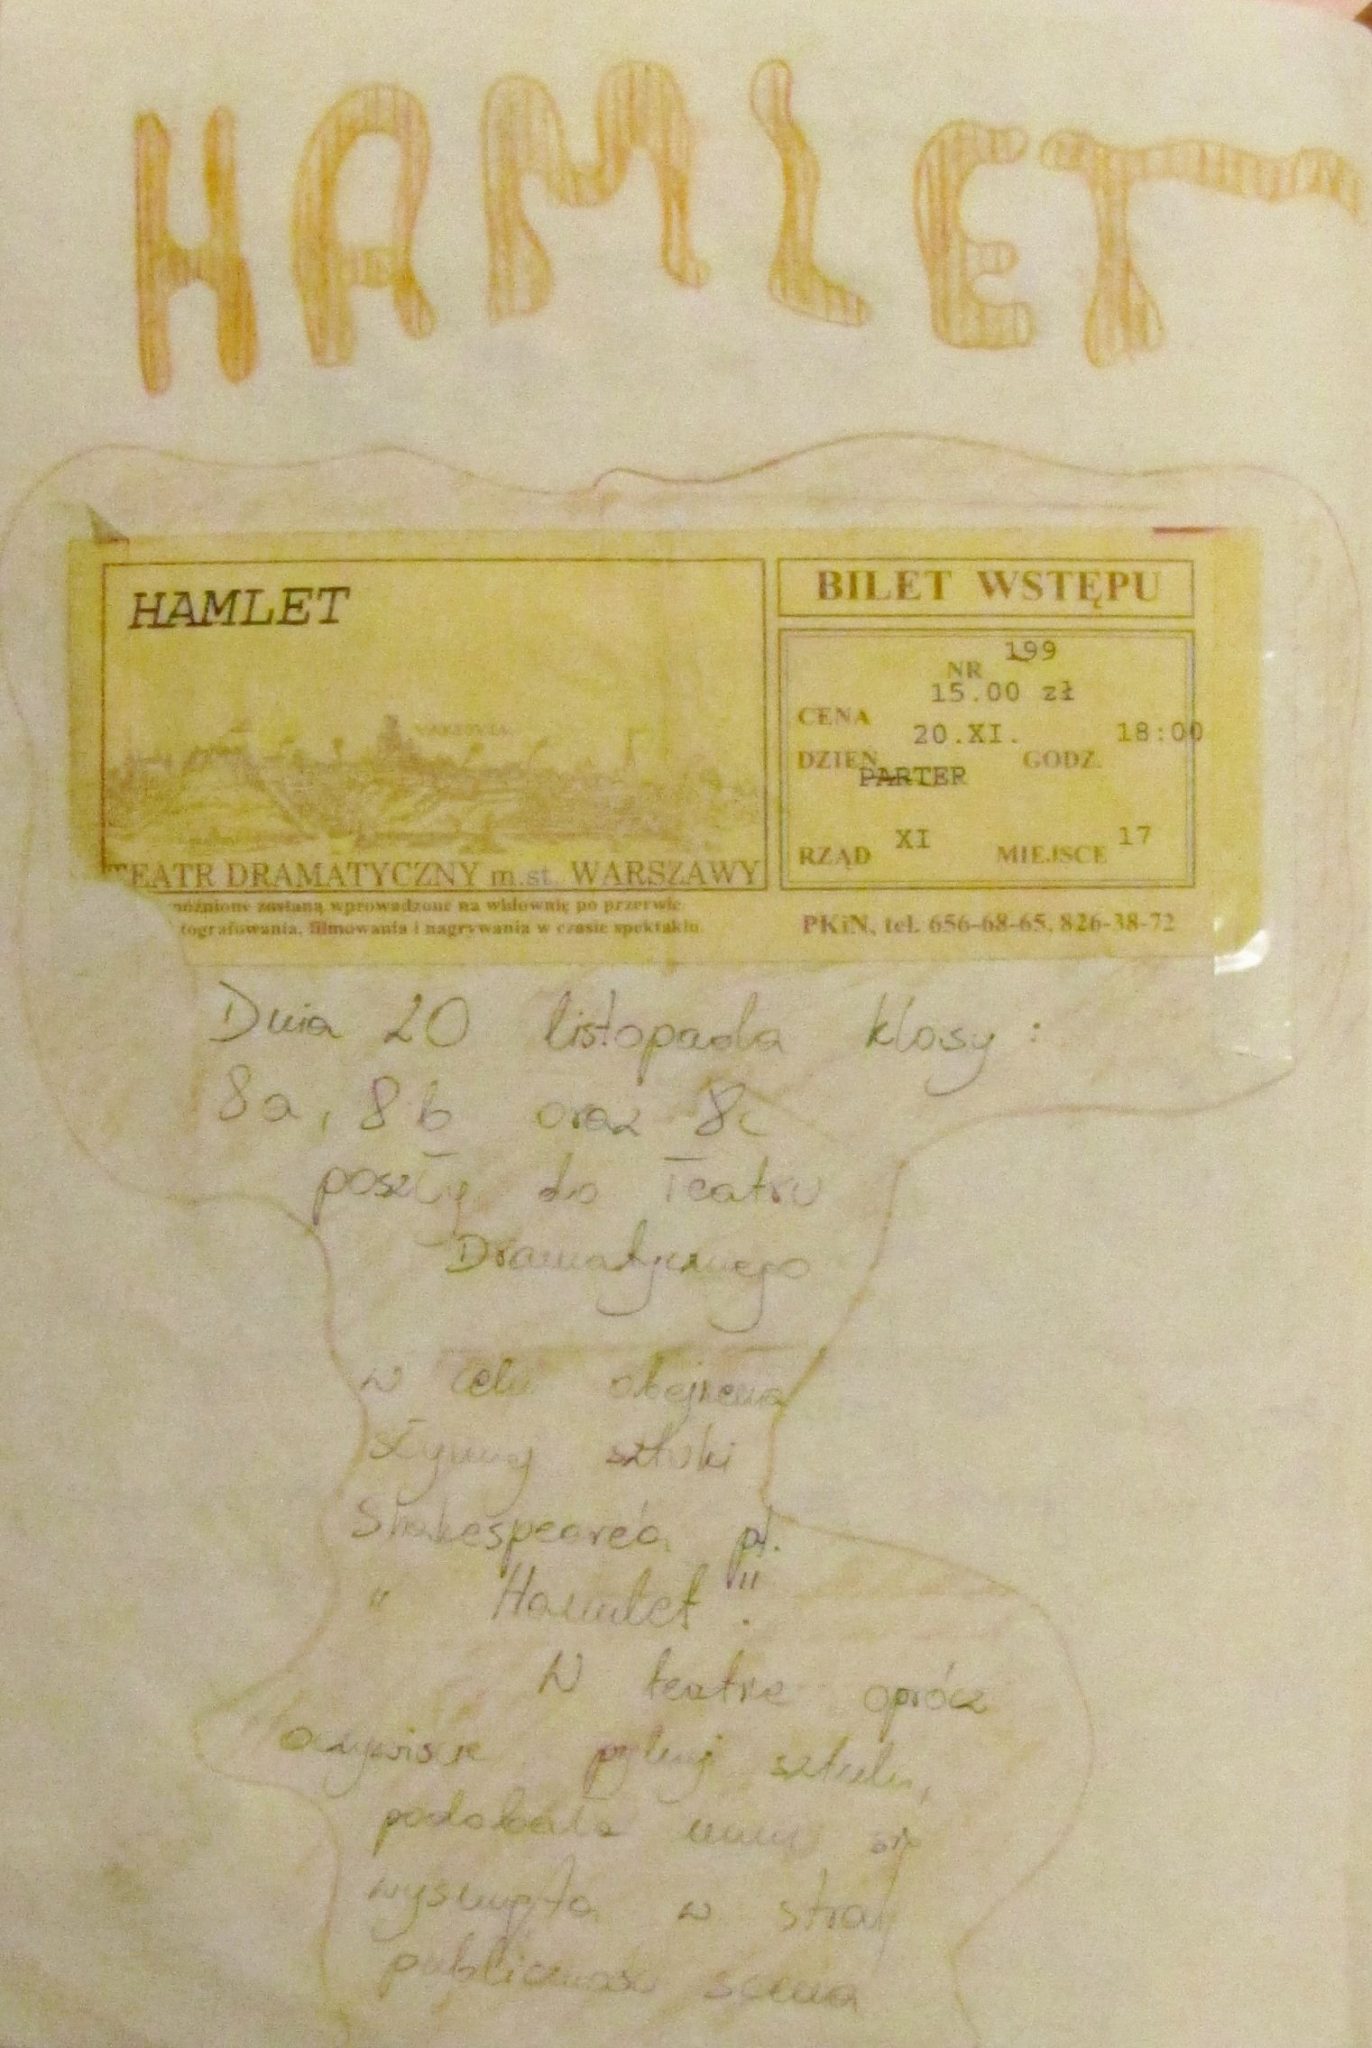 HAMLET
HAMLET
WARSZAWA
TEATR DRAMATYCZNY m.st. WARSZAWY
óźnione zostaną wprowadzone na widownię po przerwie.
tografowania, filmowania i nagrywania w czasie spektaklu.
BILET WSTĘPU
NR 199
CENA 15.00 zł
DZIEŃ 20.XI. GODZ. 18:00
PARTER
RZĄD XI MIEJSCE 17
PKiN, tel. 656-68-65, 826-38-72
Dnia 20 listopada klasy :
8a, 8b oraz 8c
poszły do Teatru
Dramatycznego
w celu obejrzenia
słynnej sztuki
Shakespeare'a pt.
" Hamlet".
W teatrze oprócz
oczywiście sztuki,
podobała nam się
wysunięta w stronę
publiczności scena